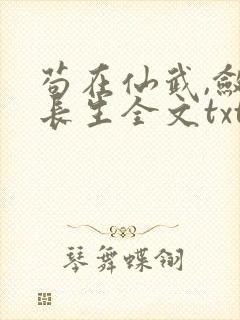 苟在仙武,
長生全文txt
琴舞蝶翎